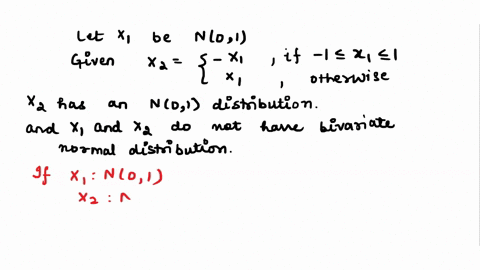 Let X₁ be N(0,1)
Given X₂ = { -X₁ , if -1 ≤ X₁ ≤ 1
X₁ , otherwise
X₂ has an N(0,1) distribution.
and X₁ and X₂ do not have bivariate
normal distribution.
If X₁ : N(0,1)
X₂ : N